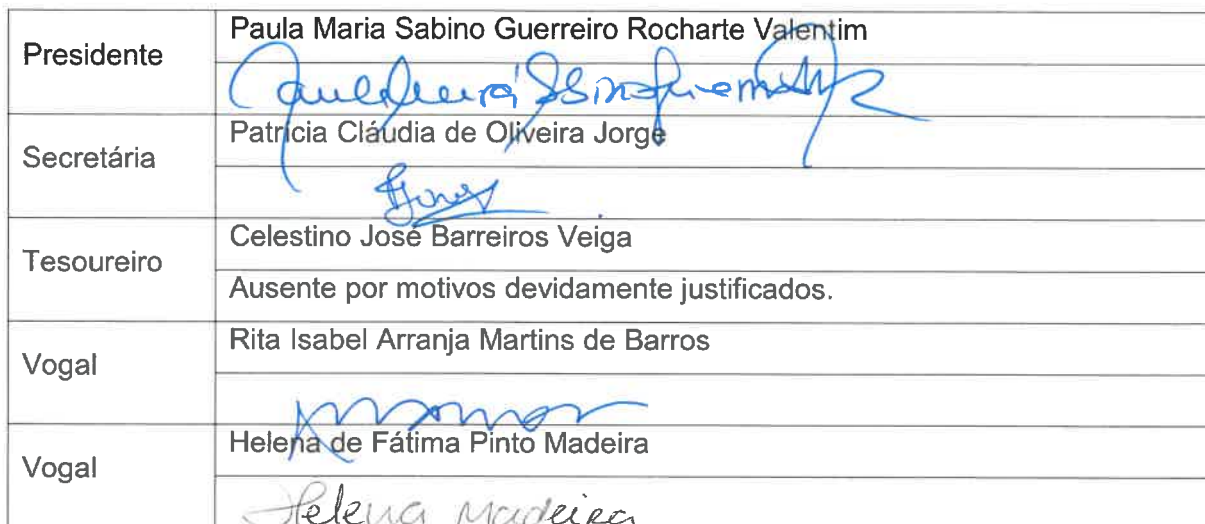 Presidente
Paula Maria Sabino Guerreiro Rocharte Valentim
Secretária
Patrícia Cláudia de Oliveira Jorge
Tesoureiro
Celestino José Barreiros Veiga
Ausente por motivos devidamente justificados.
Vogal
Rita Isabel Arranja Martins de Barros
Vogal
Helena de Fátima Pinto Madeira
Helena Madeira